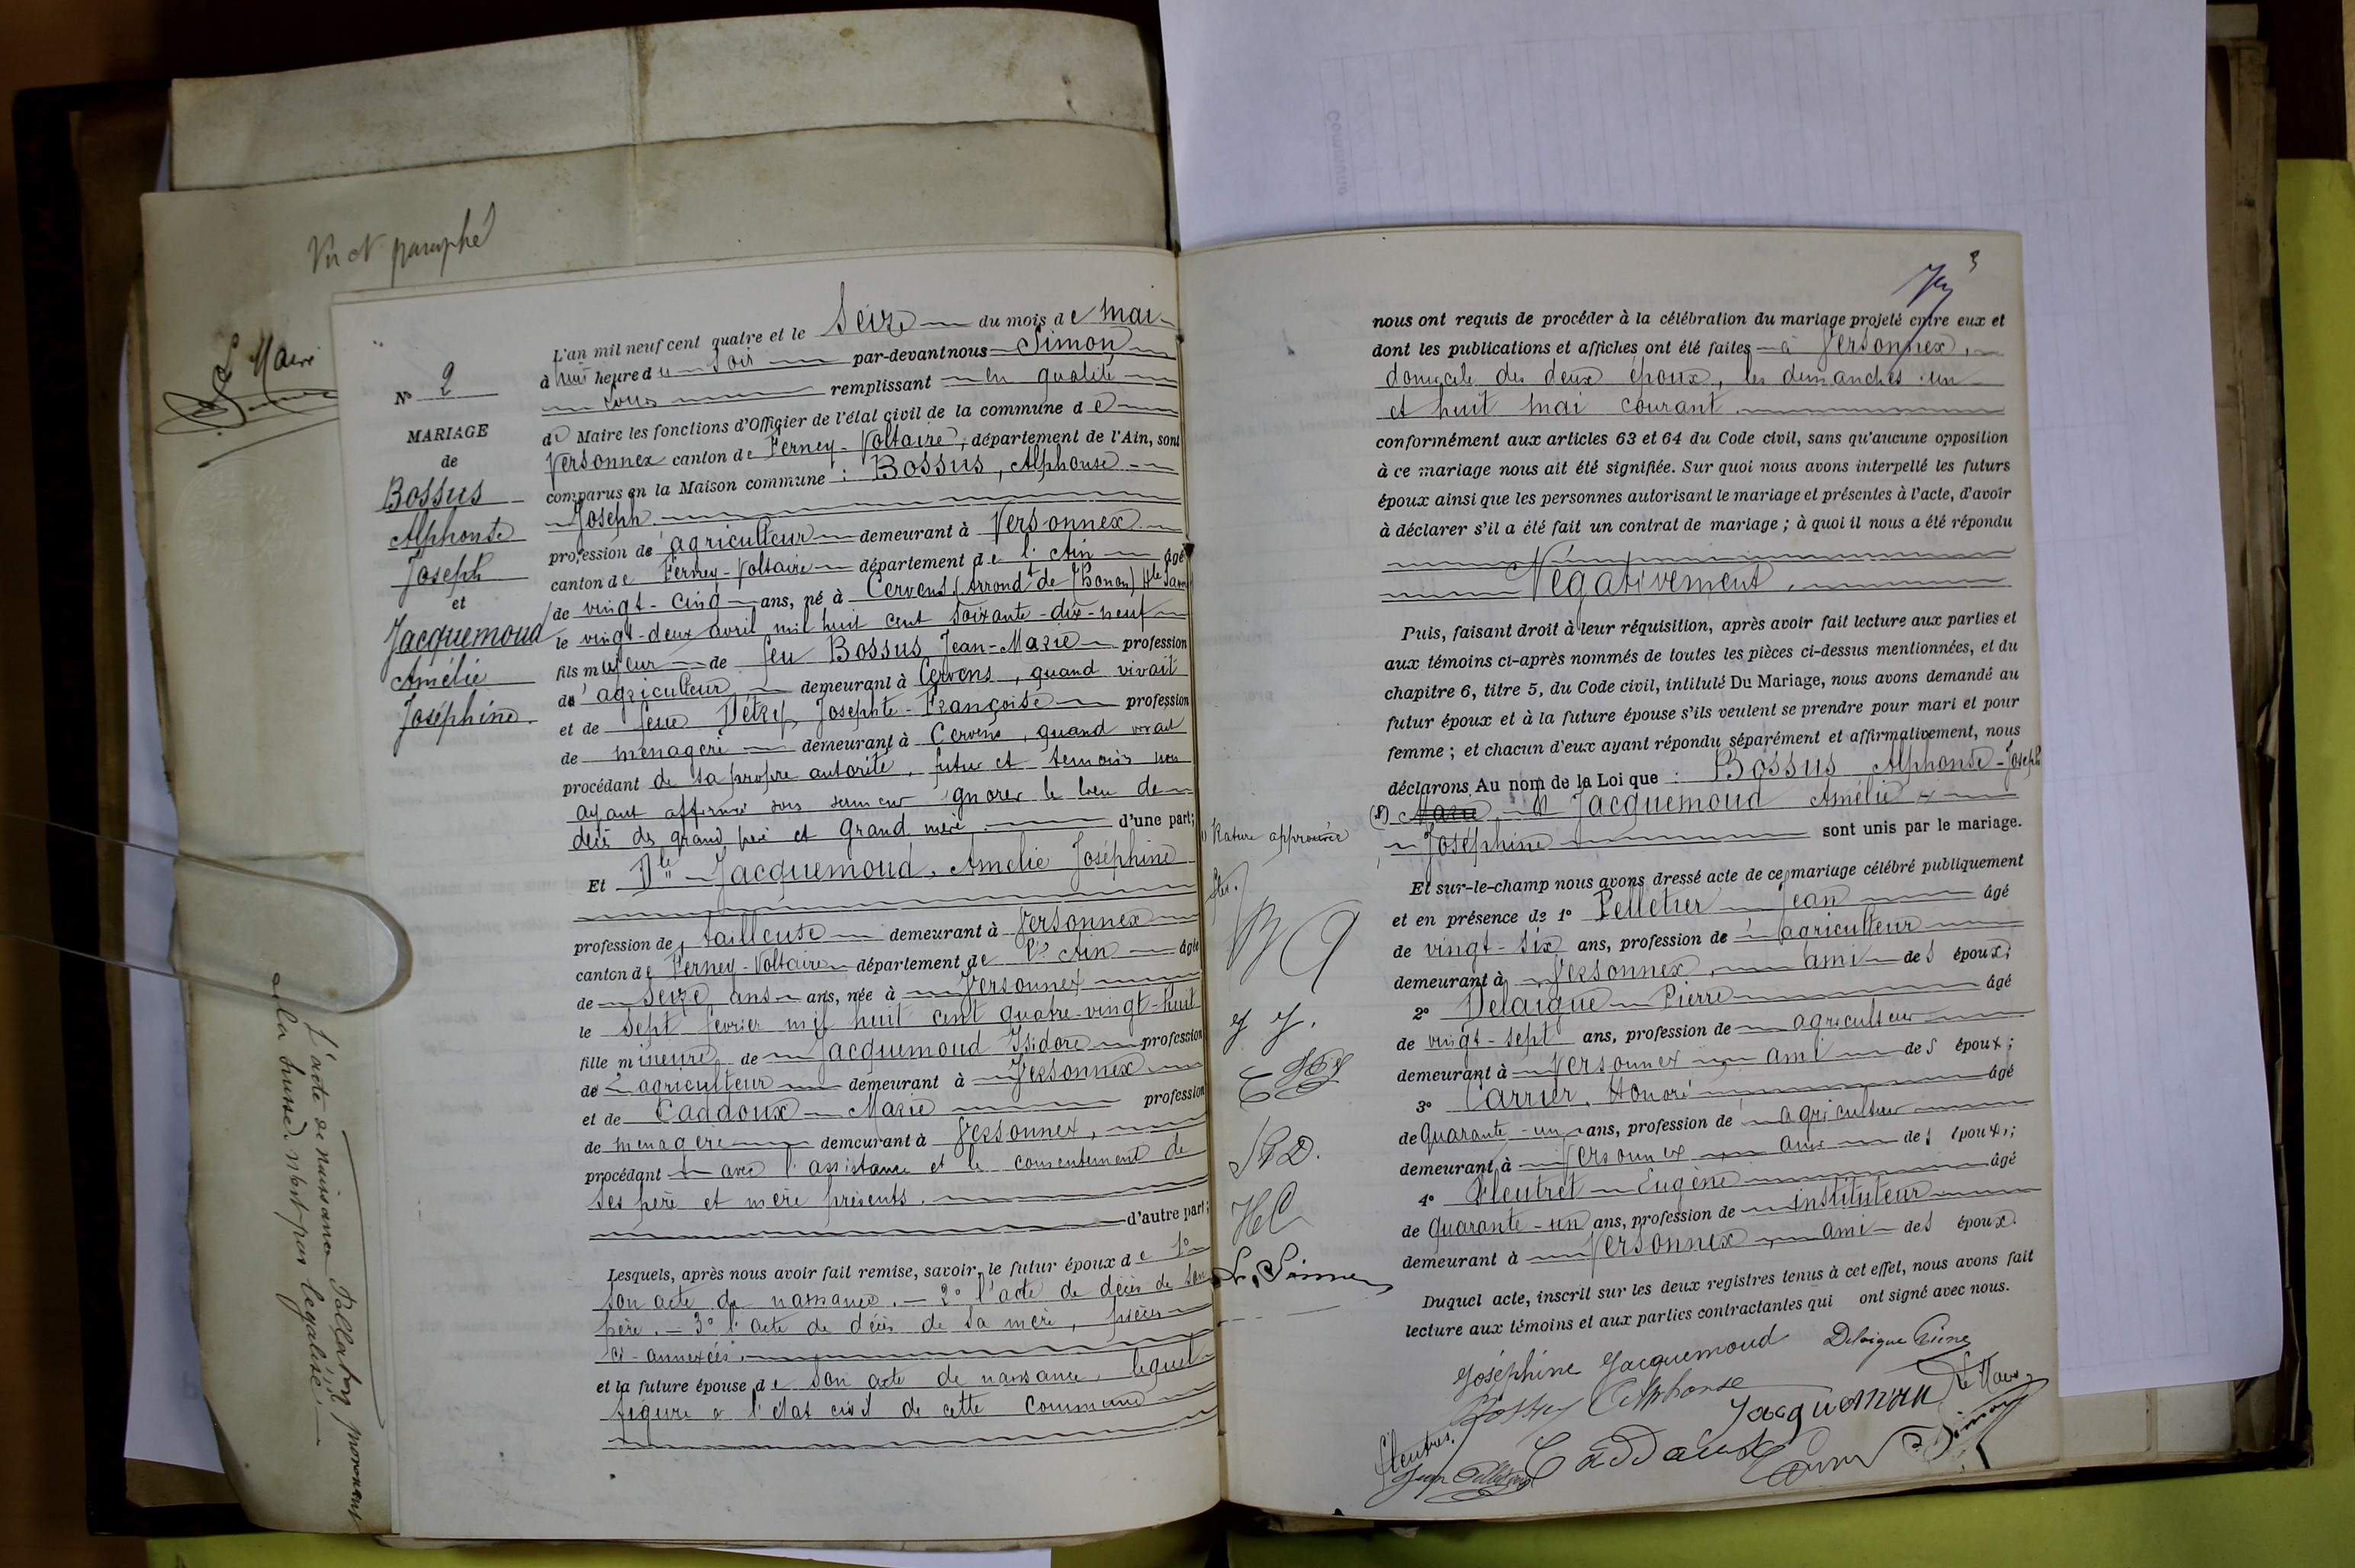 Vu et paraphé
L Maire
L'acte de naissance
de la suisse n'est pas légalisé.
N° 2
MARIAGE
de
Bossus
Alphonse
Joseph
et
Jacquemoud
Amélie
Joséphine
L'an mil neuf cent quatre et le Seize du mois de mai
à huit heure du soir par-devant nous Simon
Louis remplissant en qualité
de Maire les fonctions d'Officier de l'état civil de la commune de
Versonnex canton de Ferney-Voltaire, département de l'Ain, sont
comparus en la Maison commune : Bossus, Alphonse
Joseph
profession d'agriculteur demeurant à Versonnex
canton de Ferney-Voltaire département de l'Ain âgé
de vingt-cinq ans, né à Cervens (Arrondt de Thonon) Hte Savoie
le vingt-deux avril mil huit cent soixante-dix-neuf
fils majeur de feu Bossus Jean-Marie profession
d'agriculteur demeurant à Cervens, quand vivait
et de feue Détraz, Josephte-Françoise profession
de ménagère demeurant à Cervens, quand vivait
procédant de sa propre autorité, futur et témoins nous
ayant affirmé sous serment ignorer le lieu de
décès des grand père et grand mère d'une part;
Et Dlle Jacquemoud, Amélie Joséphine
profession de tailleuse demeurant à Versonnex
canton de Ferney-Voltaire département de l'Ain âgée
de seize ans ans, née à Versonnex
le sept février mil huit cent quatre-vingt-huit
fille mineure de Jacquemoud Isidore profession
d'agriculteur demeurant à Versonnex
et de Caddoux Marie profession
de ménagère demeurant à Versonnex,
procédant avec l'assistance et le consentement de
ses père et mère présents.
d'autre part;
Lesquels, après nous avoir fait remise, savoir, le futur époux de 1°
son acte de naissance. — 2° l'acte de décès de son
père. — 3° l'acte de décès de sa mère, pièces
ci-annexées.
et la future épouse de son acte de naissance, lequel
figure à l'état civil de cette commune
3
nous ont requis de procéder à la célébration du mariage projeté entre eux et
dont les publications et affiches ont été faites à Versonnex,
domicile des deux époux, les dimanches un
et huit mai courant.
conformément aux articles 63 et 64 du Code civil, sans qu'aucune opposition
à ce mariage nous ait été signifiée. Sur quoi nous avons interpellé les futurs
époux ainsi que les personnes autorisant le mariage et présentes à l'acte, d'avoir
à déclarer s'il a été fait un contrat de mariage ; à quoi il nous a été répondu
Négativement.
Puis, faisant droit à leur réquisition, après avoir fait lecture aux parties et
aux témoins ci-après nommés de toutes les pièces ci-dessus mentionnées, et du
chapitre 6, titre 5, du Code civil, intitulé Du Mariage, nous avons demandé au
futur époux et à la future épouse s'ils veulent se prendre pour mari et pour
femme ; et chacun d'eux ayant répondu séparément et affirmativement, nous
déclarons Au nom de la Loi que : Bossus Alphonse-Joseph
(1) et Jacquemoud Amélie
Joséphine sont unis par le mariage.
Et sur-le-champ nous avons dressé acte de ce mariage célébré publiquement
et en présence de 1° Pelletier Jean âgé
de vingt-six ans, profession d'agriculteur
demeurant à Versonnex, ami des époux;
2° Delaigue Pierre âgé
de vingt-sept ans, profession de agriculteur
demeurant à Versonnex ami des époux;
3° Carrier, Honoré âgé
de Quarante-un ans, profession de agriculteur
demeurant à Versonnex ami des époux;
4° Fleutret Eugène âgé
de Quarante-un ans, profession de instituteur
demeurant à Versonnex ami des époux.
Duquel acte, inscrit sur les deux registres tenus à cet effet, nous avons fait
lecture aux témoins et aux parties contractantes qui ont signé avec nous.
(1) Rature approuvée
B A
J J.
P D.
H C
L. Simon
Joséphine Jacquemoud Delaigue Pierre
Bossus Alphonse Jacquemoud Le Maire,
Fleutret Caddoux Carrier Simon
Jean Pelletier